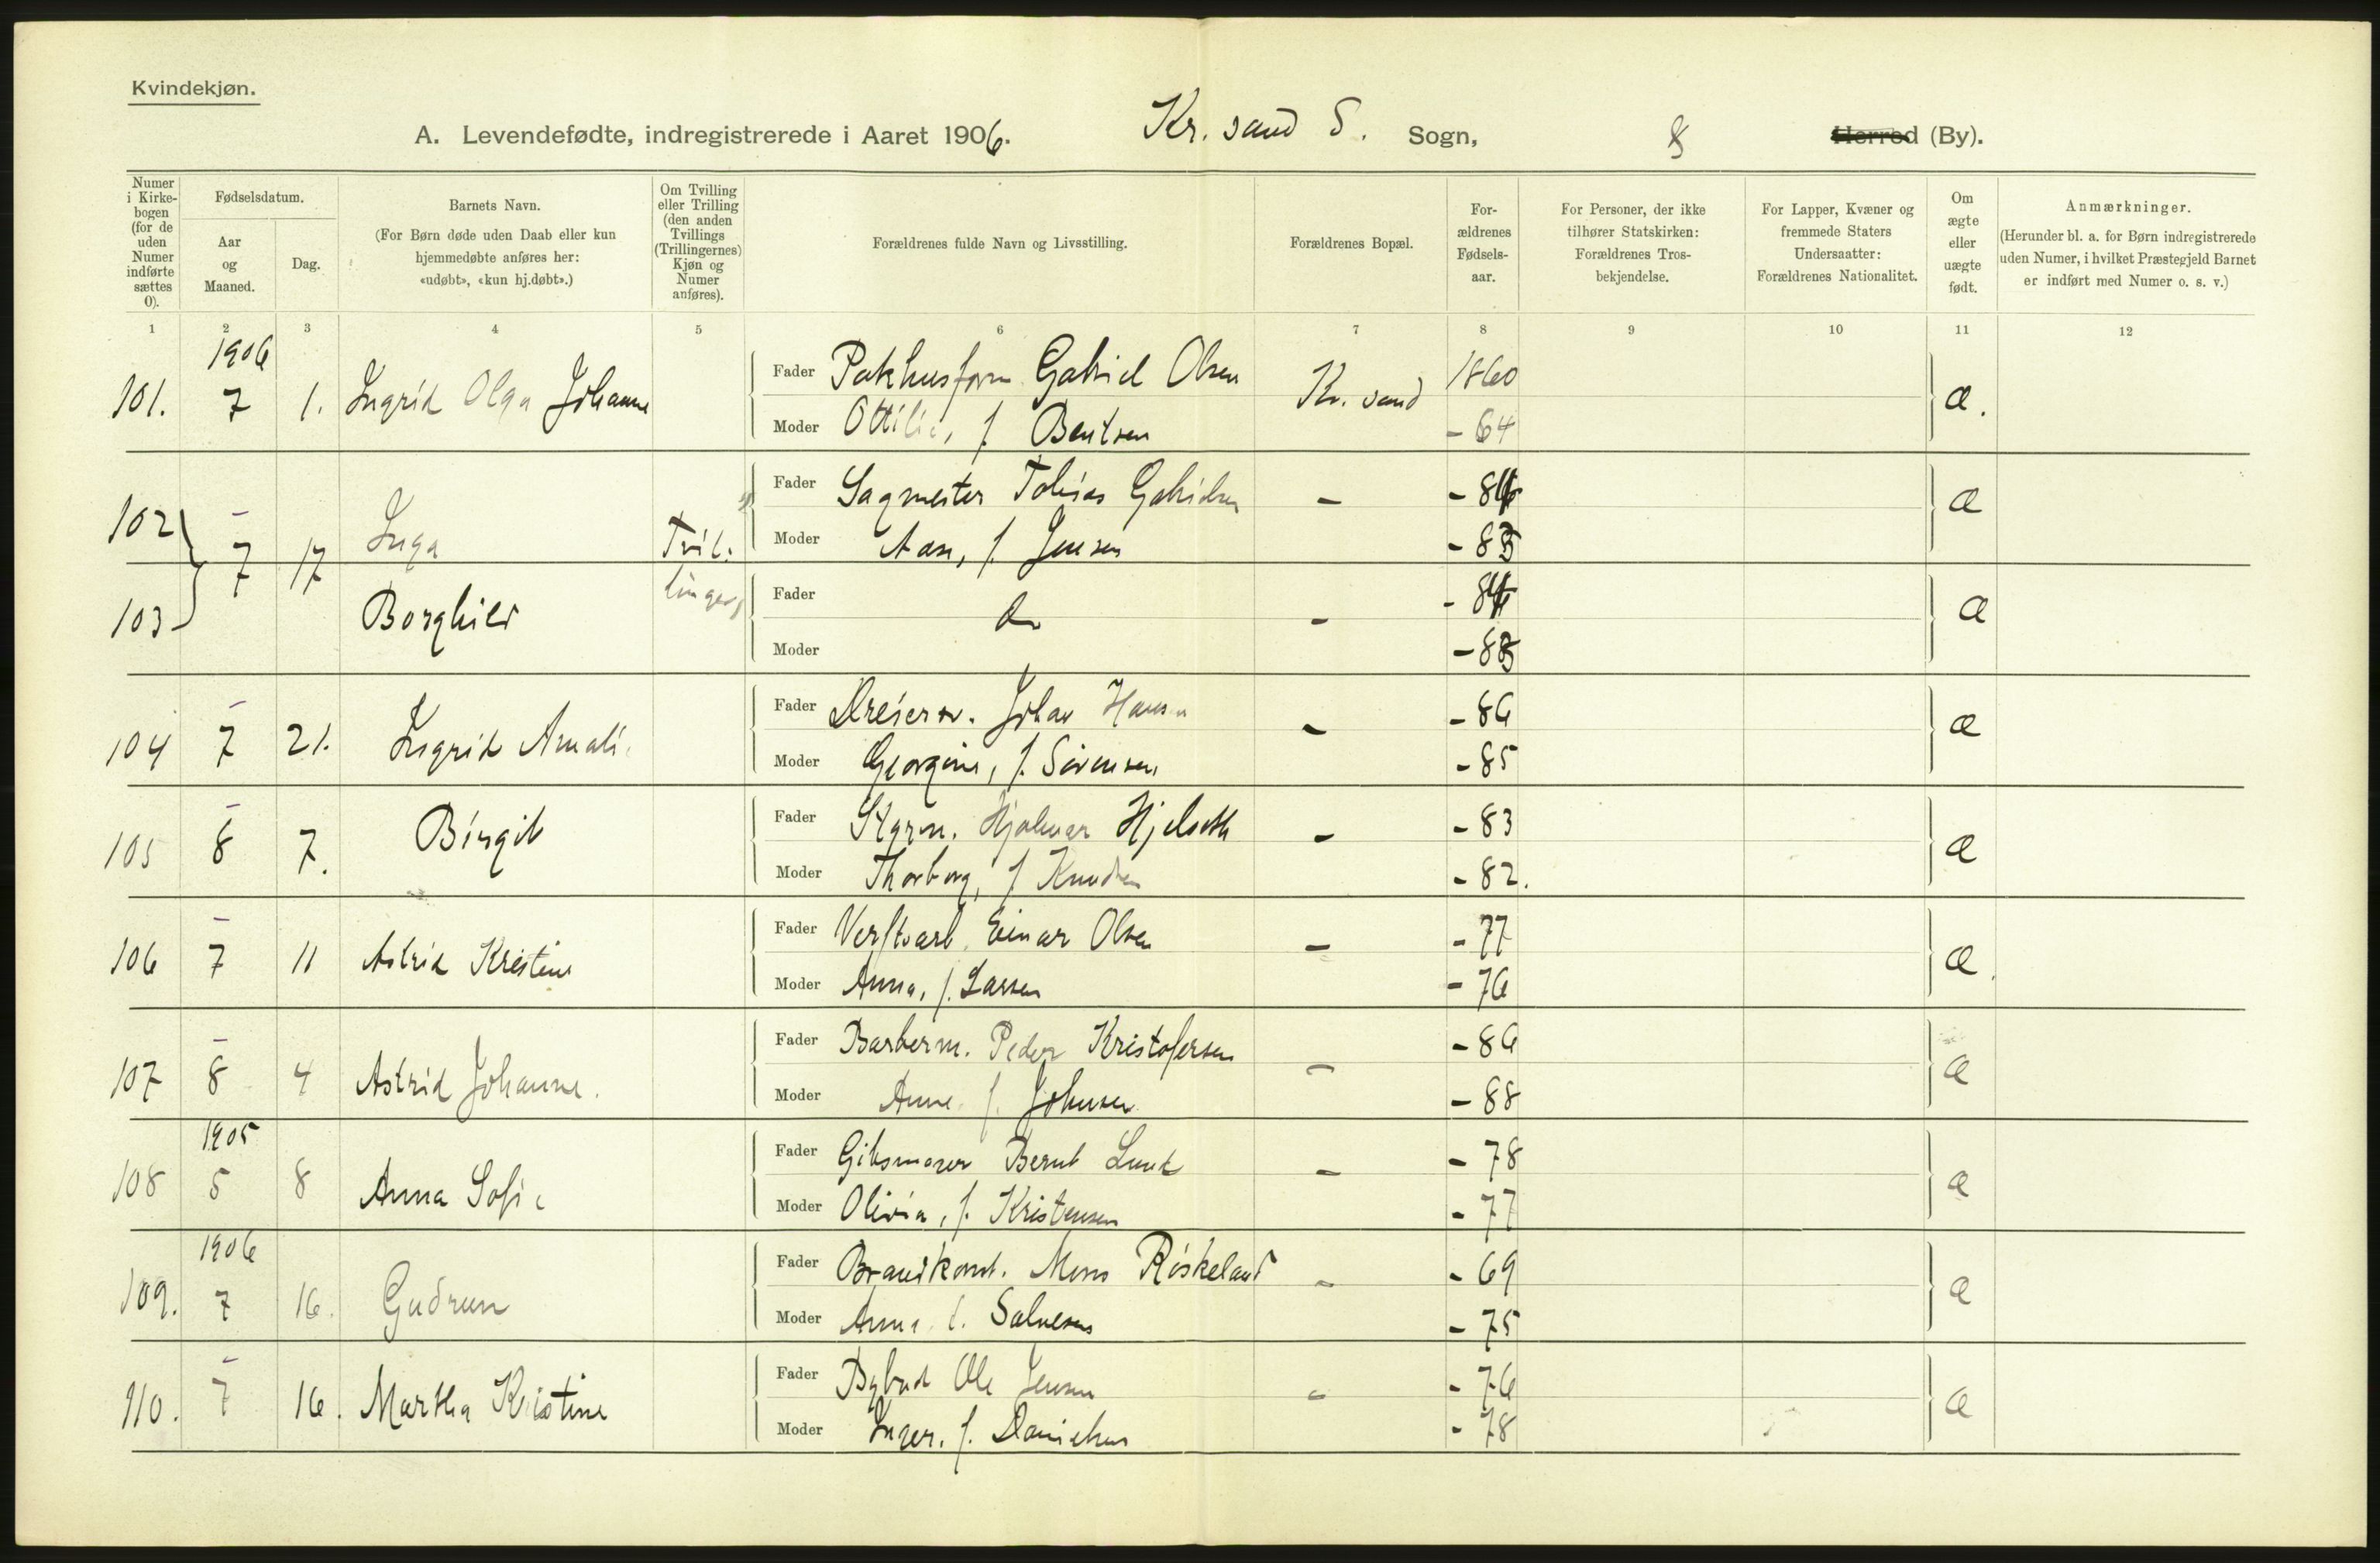 Kvindekjøn.
A. Levendefødte, indregistrerede i Aaret 1906. Kr. sand S. Sogn, 8 Herred (By).
Numer i Kirke-bogen (for de uden Numer indførte sættes 0).
Fødselsdatum.
Aar og Maaned.
Dag.
Barnets Navn.
(For Børn døde uden Daab eller kun
hjemmedøbte anføres her:
«udøbt», «kun hj.døbt».)
Om Tvilling
eller Trilling
(den anden
Tvillings
(Trillingernes)
Kjøn og
Numer
anføres).
Forældrenes fulde Navn og Livsstilling.
Forældrenes Bopæl.
For-
ældrenes
Fødsels-
aar.
For Personer, der ikke
tilhører Statskirken:
Forældrenes Tros-
bekjendelse.
For Lapper, Kvæner og
fremmede Staters
Undersaatter:
Forældrenes Nationalitet.
Om
ægte
eller
uægte
født.
Anmærkninger.
(Herunder bl. a. for Børn indregistrerede
uden Numer, i hvilket Præstegjeld Barnet
er indført med Numer o. s. v.)
1 2 3 4 5 6 7 8 9 10 11 12
1906
101. 7 1. Ingrid Olga Johanne Fader Pakhusform Gabriel Olsen Kr. sand 1860 æ.
Moder Ottilie, f. Bentsen - 64
102 - 7 17 Inga Tvil. Fader Sagmester Tobias Gabrielsen - - 84 æ
Moder Aase, f. Jensen - 83
103 Borghild linger Fader do - - 84 æ
Moder - 83
104 - 7 21. Ingrid Amali Fader Dreiersv. Johan Hansen - - 86 æ
Moder Georgine, f. Sörensen - 85
105 - 8 7. Birgit Fader Styrm. Hjalmar Hjelseth - - 83 æ
Moder Thorborg, f Knudsen - 82.
106 - 7 11 Astrid Kristine Fader Verftsarb. Einar Olsen - - 77 æ.
Moder Anna, f. Larsen - 76
107 - 8 4 Astrid Johanne. Fader Barberm. Peder Kristofersen - - 86 æ
Moder Anne f. Johnsen - 88
1905
108 5 8 Anna Sofie Fader Gibsmager Bernt Lund - - 78 æ
Moder Olivia, f. Kristensen - 77
1906
109. 7 16. Gudrun Fader Brandkonst. Mons Röskeland - - 69 æ
Moder Anna f. Salvesen - 75
110. - 7 16. Martha Kristine Fader Bybud Ole Jensen - - 76 æ
Moder Inger. f. Danielsen - 78